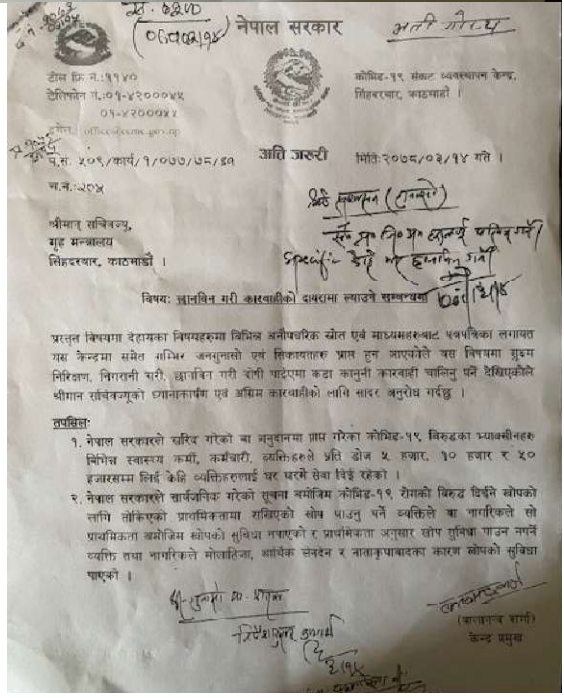 नेपाल सरकार
अति गोप्य
टोल फ्रि नं.:११४०
टेलिफोन नं.:०१-४२०००४५
०१-४२०००५५
इमेल: office@ccmc.gov.np
कोभिड-१९ संकट व्यवस्थापन केन्द्र,
सिंहदरबार, काठमाडौं ।
अति जरुरी
प.सं. ५०९/कार्य/१/०७७/७८/
मिति:२०७८/०३/१४ गते ।
च.नं.:२०४
श्रीमान् सचिवज्यू,
गृह मन्त्रालय
सिंहदरबार, काठमाडौं ।
Specific
विषय: छानविन गरी कारवाहीको दायरामा ल्याउने सम्बन्धमा
प्रस्तुत विषयमा देहायका विषयहरुमा विभिन्न अनौपचारिक स्रोत एवं माध्यमहरुबाट पत्रपत्रिका लगायत
यस केन्द्रमा समेत गम्भिर जनगुनासो एवं सिकायतहरु प्राप्त हुन आएकोले यस विषयमा सुक्ष्म
निरिक्षण, निगरानी गरी, छानविन गरी दोषी पाईएमा कडा कानुनी कारवाही चालिनु पर्ने देखिएकोले
श्रीमान सचिवज्यूको ध्यानाकार्षण एवं अग्रिम कारवाहीको लागि सादर अनुरोध गर्दछु ।
तपसिल:
१. नेपाल सरकारले खरिद गरेको वा अनुदानमा प्राप्त गरेका कोभिड-१९ विरुद्धका भ्याक्सीनहरु
विभिन्न स्वास्थ्य कर्मी, कर्मचारी, व्यक्तिहरुले प्रति डोज ५ हजार, १० हजार र ५०
हजारसम्म लिई केहि व्यक्तिहरुलाई घर घरमै सेवा दिई रहेको ।
२. नेपाल सरकारले सार्वजनिक गरेको सूचना बमोजिम कोभिड-१९ रोगको विरुद्ध दिईने खोपको
लागि तोकिएको प्राथमिकतामा राखिएको खोप पाउनु पर्ने व्यक्तिले वा नागरिकले सो
प्राथमिकता बमोजिम खोपको सुविधा नपाएको र प्राथमिकता अनुसार खोप सुविधा पाउन नपर्ने
व्यक्ति तथा नागरिकले मोलाहिजा, आर्थिक लेनदेन र नाताकृपावादका कारण खोपको सुविधा
पाएको ।
(बालानन्द शर्मा)
केन्द्र प्रमुख